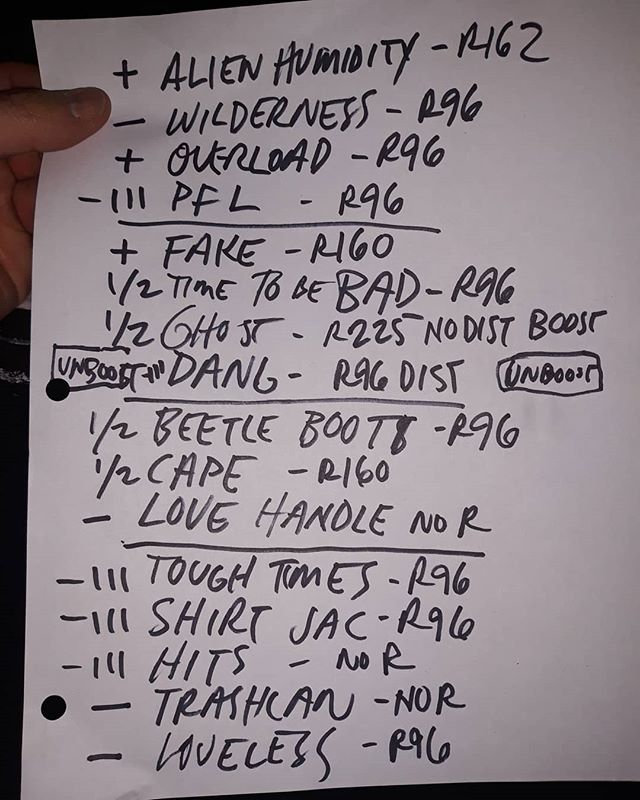 + ALIEN HUMIDITY - R162
- WILDERNESS - R96
+ OVERLOAD - R96
-111 PFL - R96
+ FAKE - R160
1/2 TIME TO BE BAD - R96
1/2 GHOST - R225 NO DIST BOOST
UNBOOST -111 DANG - R96 DIST UNBOOST
1/2 BEETLE BOOTS - R96
1/2 CAPE - R160
- LOVE HANDLE NO R
-111 TOUGH TIMES - R96
-111 SHIRT JAC - R96
-111 HITS - NO R
- TRASHCAN - NO R
- LOVELESS - R96